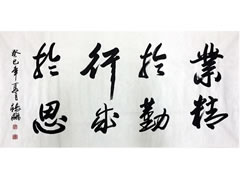 業精
於勤
行成
於思
癸巳年夏月